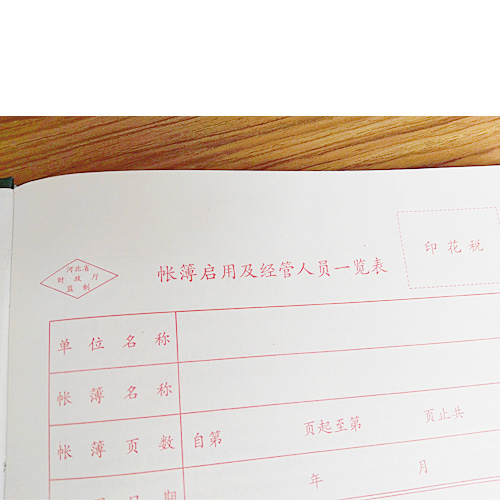 印花税
河北省
财政厅
监制
帐簿启用及经管人员一览表
单位名称
帐簿名称
帐簿页数 自第 页起至第 页止共
日期 年 月